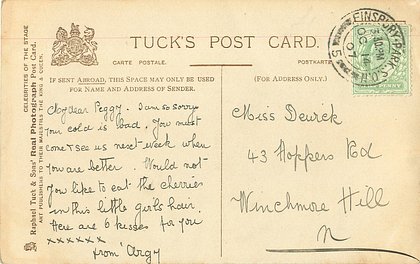 TUCK'S POST CARD.
CARTE POSTALE.
POSTKARTE.
IF SENT ABROAD, THIS SPACE MAY ONLY BE USED
FOR NAME AND ADDRESS OF SENDER.
(FOR ADDRESS ONLY.)
CELEBRITIES OF THE STAGE
Raphael Tuck & Sons' Real Photograph Post Card.
ART PUBLISHERS TO THEIR MAJESTIES THE KING & QUEEN.
FINSBURY PARK
OC 4
07
My dear Peggy. I am so sorry
your cold is bad. You must
come & see us next week when
you are better. Would not
you like to eat the cherries
in this little girls hair.
Here are 6 kisses for you
xxxxxx
from Argy
Miss Deurick
43 Hoppers Rd
Winchmore Hill
N